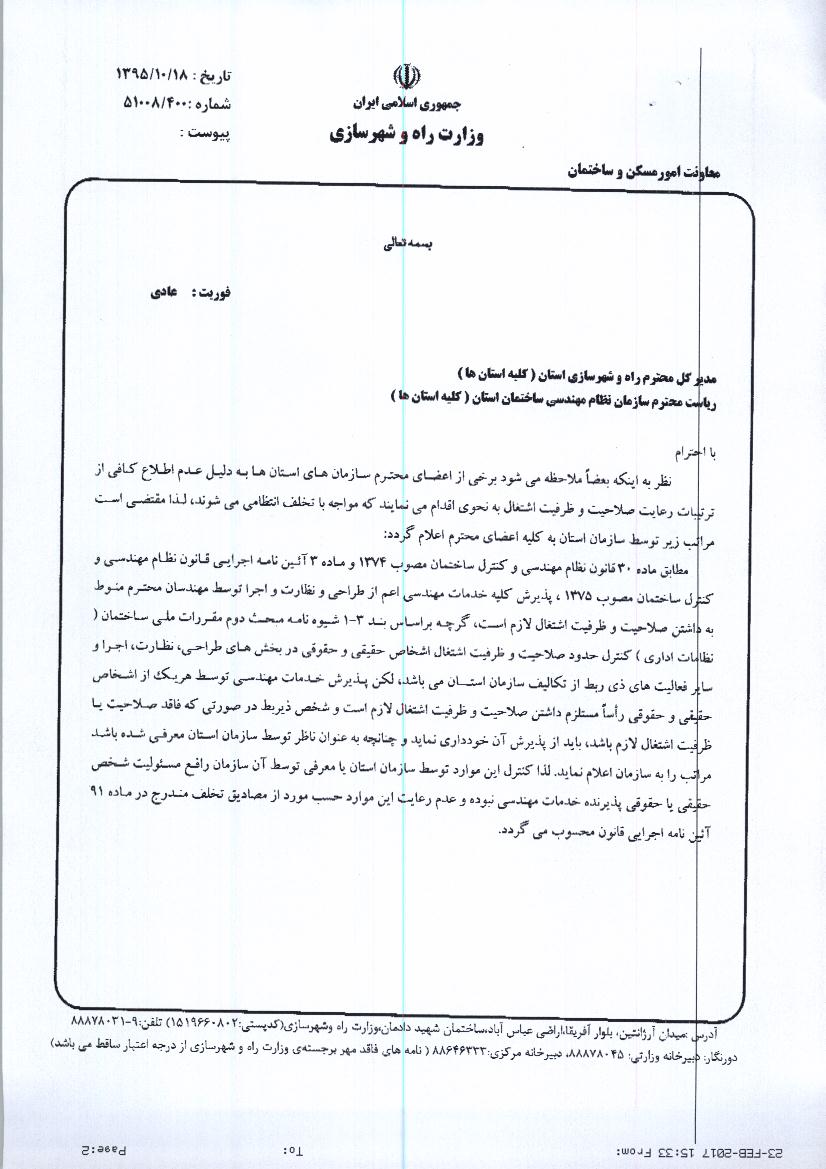 تاریخ : ۱۳۹۵/۱۰/۱۸
شماره :۵۱۰۰۸/۴۰۰
پیوست :
جمهوری اسلامی ایران
وزارت راه و شهرسازی
معاونت امور مسکن و ساختمان
بسمه تعالی
فوریت : عادی
مدیر کل محترم راه و شهرسازی استان ( کلیه استان ها )
ریاست محترم سازمان نظام مهندسی ساختمان استان ( کلیه استان ها )
با احترام
نظر به اینکه بعضاً ملاحظه می شود برخی از اعضای محترم سازمان های استان ها به دلیل عدم اطلاع کافی از
ترتیبات رعایت صلاحیت و ظرفیت اشتغال به نحوی اقدام می نمایند که مواجه با تخلف انتظامی می شوند، لذا مقتضی است
مراتب زیر توسط سازمان استان به کلیه اعضای محترم اعلام گردد:
مطابق ماده ۳۰ قانون نظام مهندسی و کنترل ساختمان مصوب ۱۳۷۴ و ماده ۳ آئین نامه اجرایی قانون نظام مهندسی و
کنترل ساختمان مصوب ۱۳۷۵ ، پذیرش کلیه خدمات مهندسی اعم از طراحی و نظارت و اجرا توسط مهندسان محترم منوط
به داشتن صلاحیت و ظرفیت اشتغال لازم است، گرچه براساس بند ۳-۱ شیوه نامه مبحث دوم مقررات ملی ساختمان (
نظامات اداری ) کنترل حدود صلاحیت و ظرفیت اشتغال اشخاص حقیقی و حقوقی در بخش های طراحی، نظارت، اجرا و
سایر فعالیت های ذی ربط از تکالیف سازمان استان می باشد، لکن پذیرش خدمات مهندسی توسط هریک از اشخاص
حقیقی و حقوقی رأساً مستلزم داشتن صلاحیت و ظرفیت اشتغال لازم است و شخص ذیربط در صورتی که فاقد صلاحیت یا
ظرفیت اشتغال لازم باشد، باید از پذیرش آن خودداری نماید و چنانچه به عنوان ناظر توسط سازمان استان معرفی شده باشد
مراتب را به سازمان اعلام نماید. لذا کنترل این موارد توسط سازمان استان یا معرفی توسط آن سازمان رافع مسئولیت شخص
حقیقی یا حقوقی پذیرنده خدمات مهندسی نبوده و عدم رعایت این موارد حسب مورد از مصادیق تخلف مندرج در ماده ۹۱
آئین نامه اجرایی قانون محسوب می گردد.
آدرس :میدان آرژانتین، بلوار آفریقا،اراضی عباس آباد،ساختمان شهید دادمان،وزارت راه وشهرسازی(کدپستی:۱۵۱۹۶۶۰۸۰۲) تلفن:۹-۸۸۸۷۸۰۳۱
دورنگار: دبیرخانه وزارتی: ۸۸۸۷۸۰۴۵، دبیرخانه مرکزی:۸۸۶۴۶۳۳۳ ( نامه های فاقد مهر برجسته‌ی وزارت راه و شهرسازی از درجه اعتبار ساقط می باشد)
23-FEB-2017 15:33 From: To: Page:2